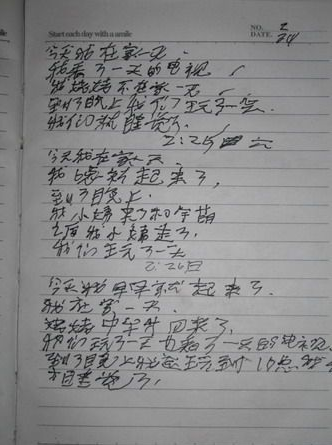 Start each day with a smile
NO. 2
DATE. 24
今天我在家一天.
我看了一天的电视
我姥姥不在家一天
到了晚上我们玩了一会
我们就睡觉了.
2:25日 六
今天我在家一天.
我 起来了,
到了晚上.
我小姨来了和
我小姨走了,
我们玩了一天
2:26日
今天我早早就起来了.
我在家一天.
姥姥中午外回来了,
我们玩了一天也看了一天的电视.
到了晚上我还玩到10点
睡觉了,